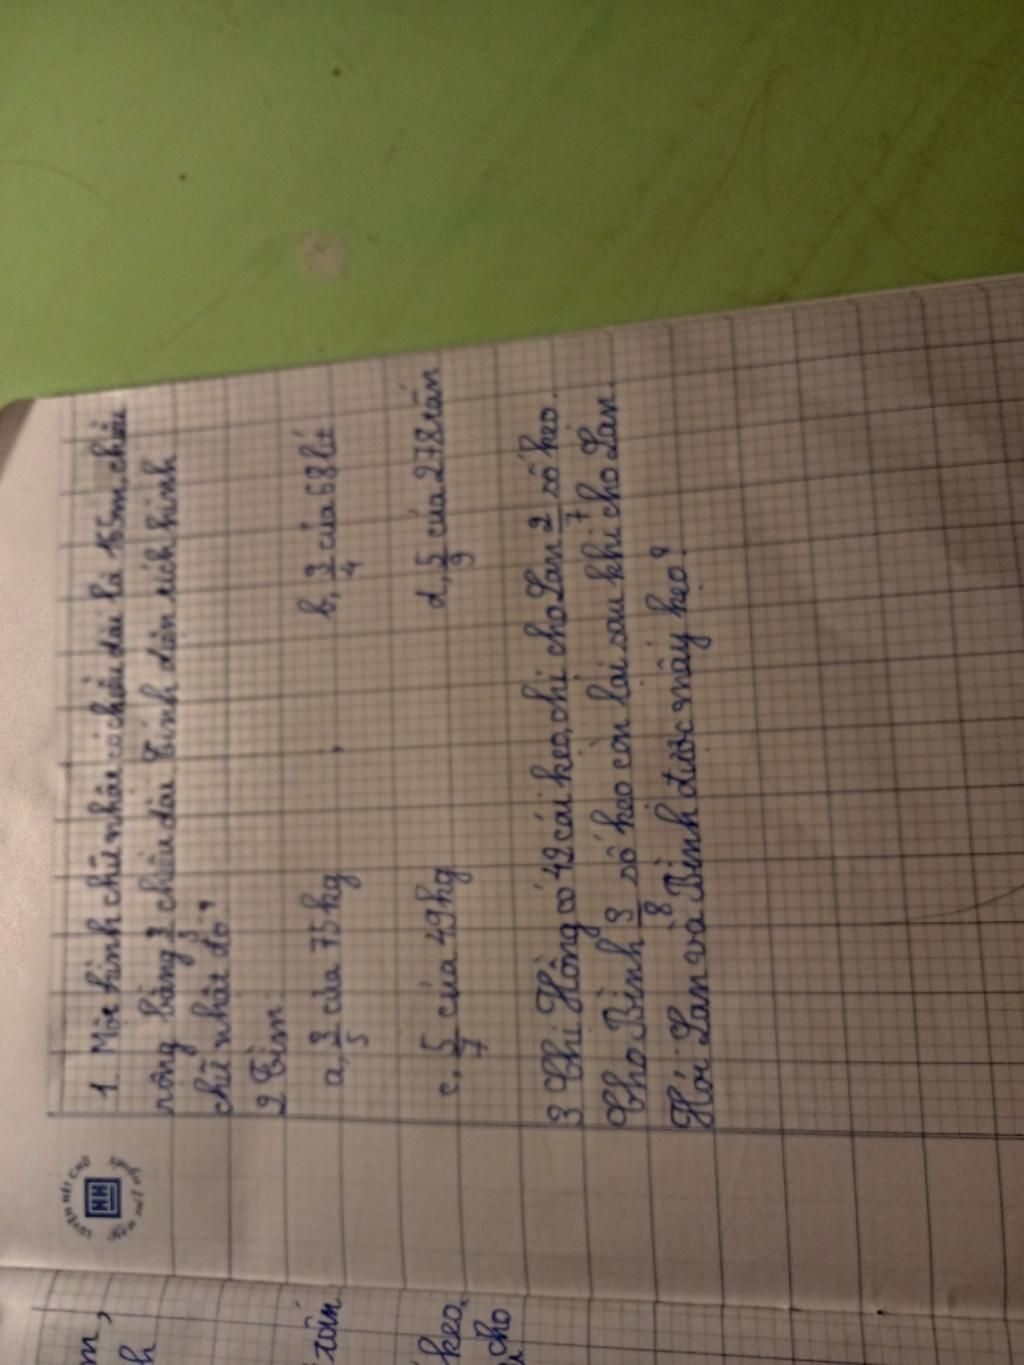 1. Một hình chữ nhật có chiều dài là 15m, chiều
rộng bằng 3/5 chiều dài. Tính diện tích hình
chữ nhật đó?
2 Tìm:
a, 3/5 của 75 kg
b, 3/4 của 68 lít
c, 5/7 của 49 kg
d, 5/9 của 278 tấn
3 Chị Hồng có 42 cái kẹo, chị cho Lan 2/7 số kẹo.
Cho Bình 3/8 số kẹo còn lại sau khi cho Lan.
Hỏi Lan và Bình được mấy kẹo?
m,
h
tấn
kẹo.
cho